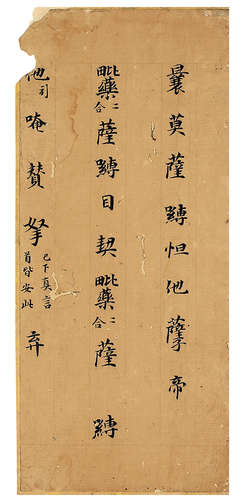 曩莫薩縛怛他孽帝
毗藥二合薩縛目契毗藥二合薩縛
他引唵賛拏已下真言首皆安此弃